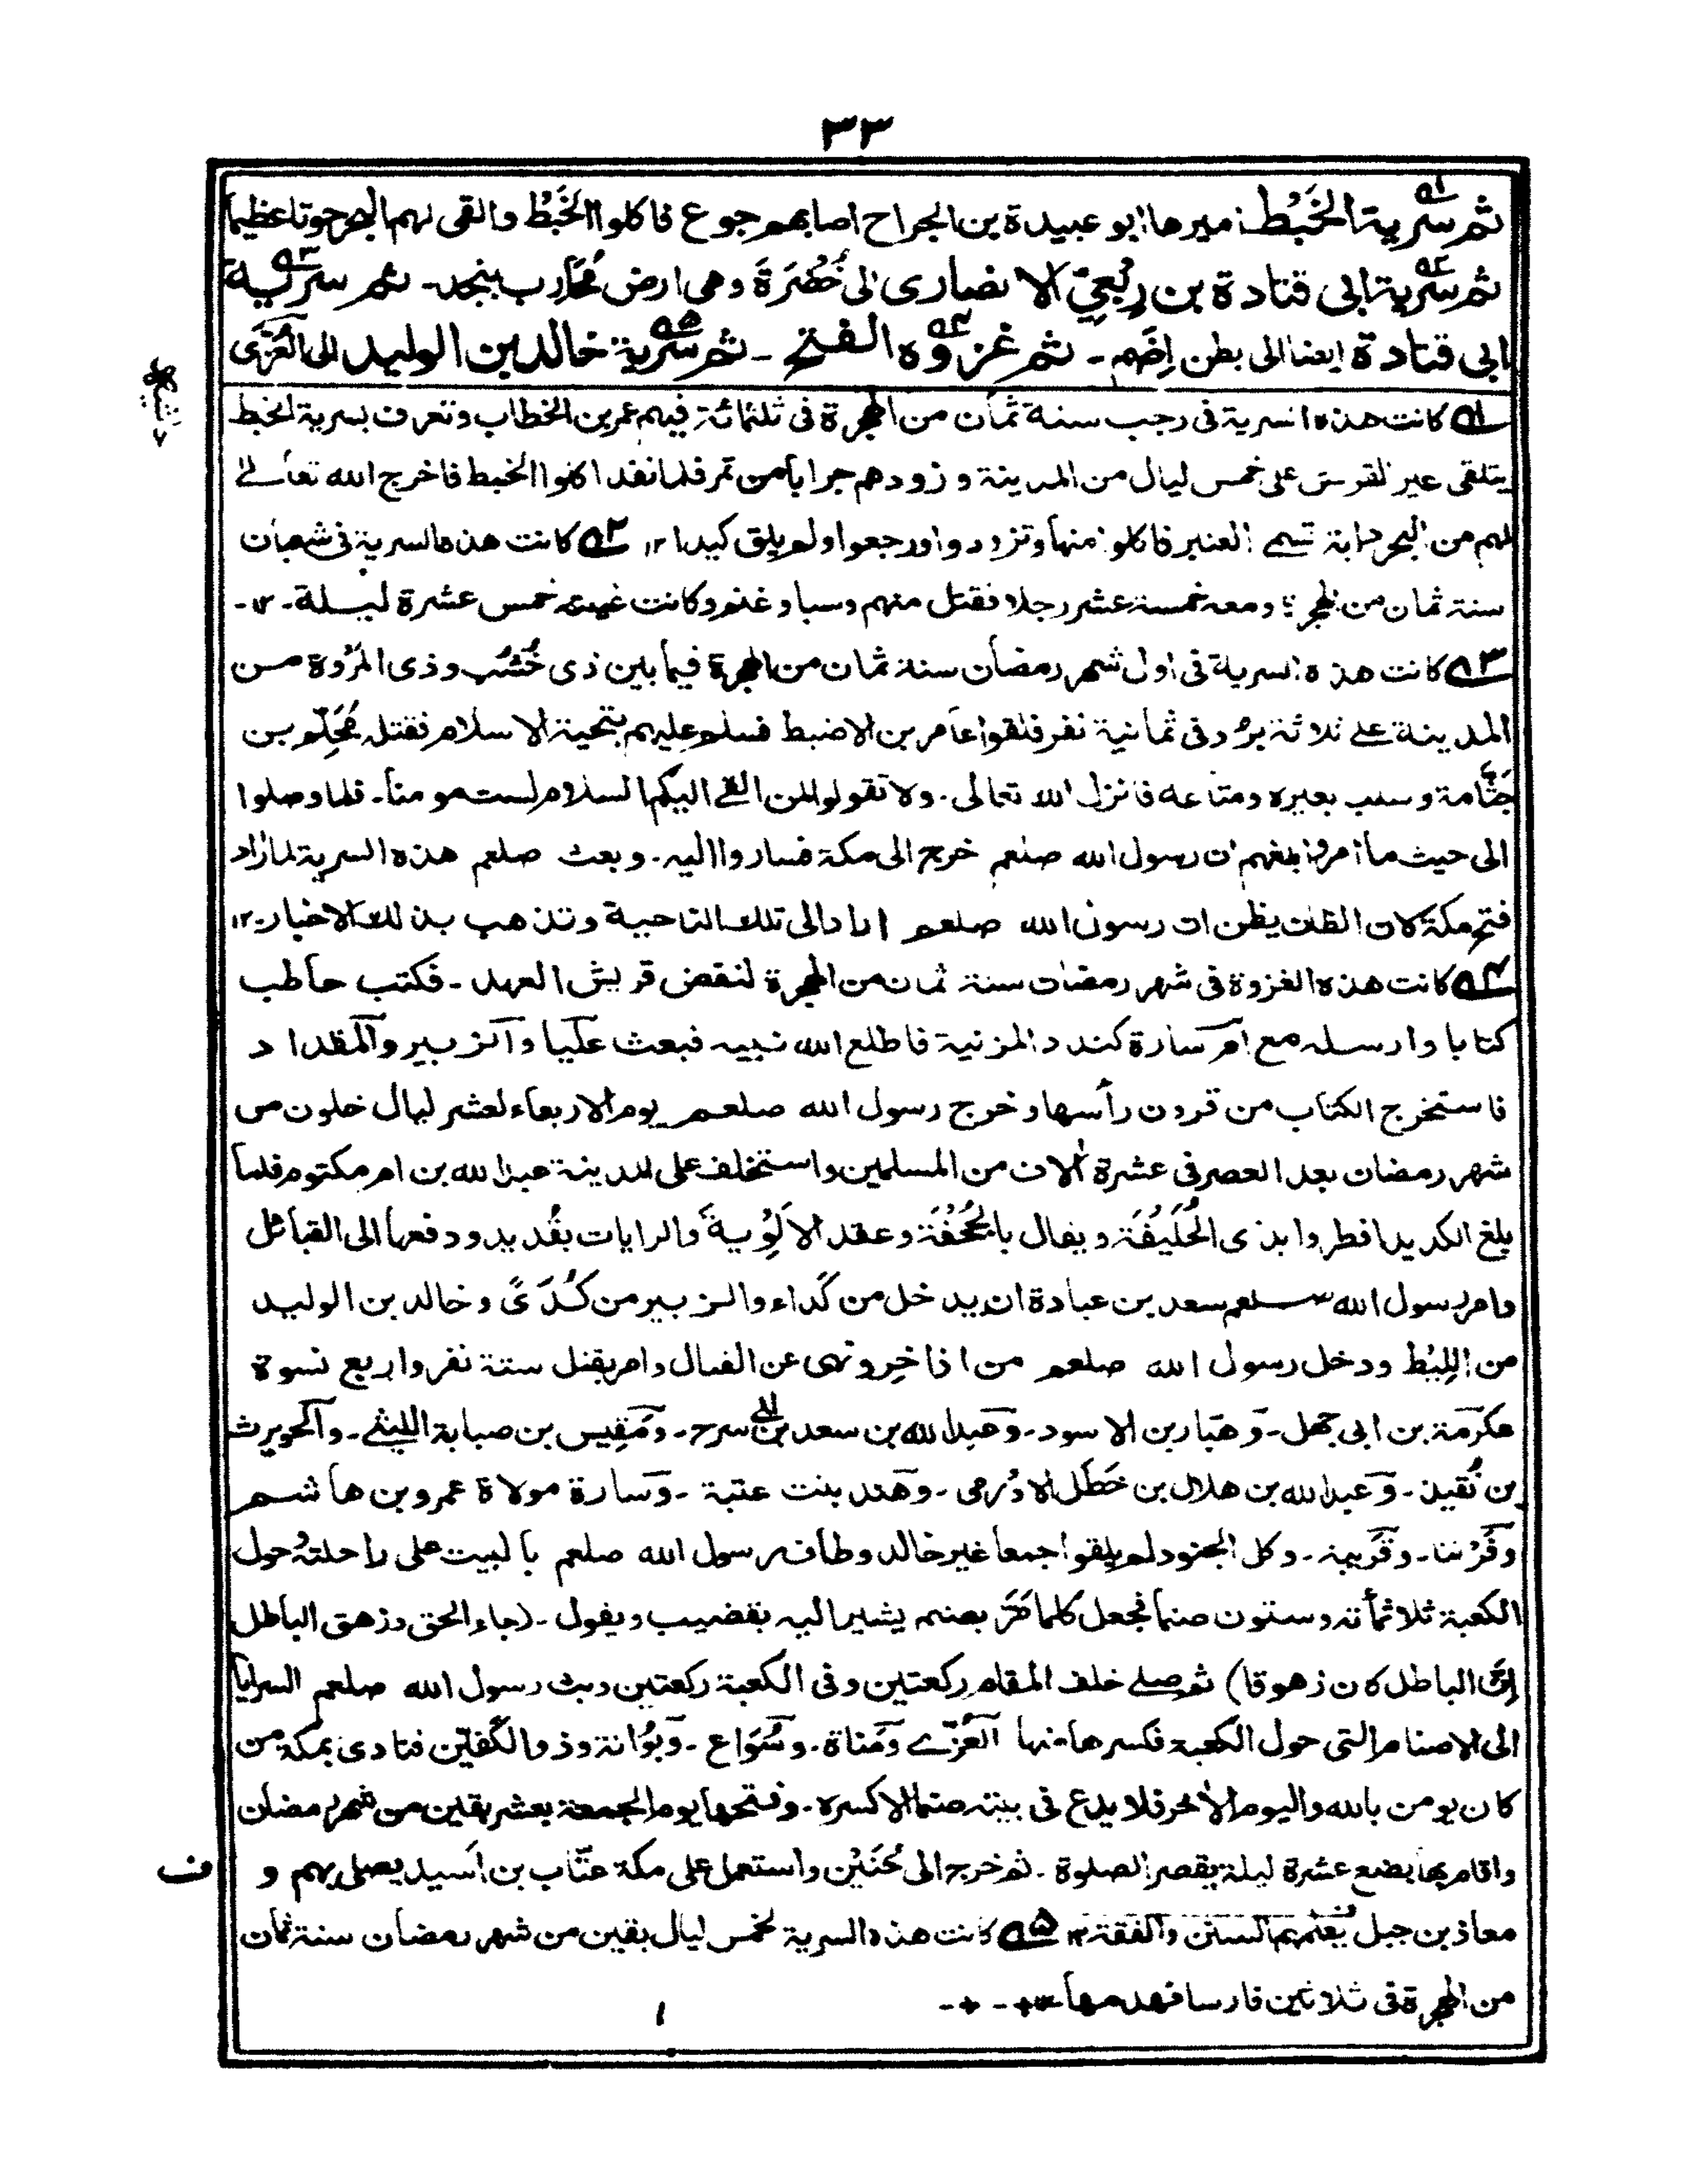 ٣٣
ثم سرية الخَبَط اميرها ابو عبيدة بن الجراح اصابهم جوع فاكلوا الخَبَط والقى لهم البحر حوتا عظيما
ثم سرية ابى قتادة بن رِبْعِيّ الانصارى الى خُضْرَةَ وهى ارض مُحَارب بنجد۔ ثم سرية
ابى قتادة ايضا الى بطن اِضَم۔ ثم غزوه الفتح۔ ثم سرية خالد بن الوليد الى العُزّى
له كانت هذه السرية فى رجب سنة ثمان من الهجرة فى ثلثمائة فيهم عمر بن الخطاب وتعرف بسرية الخبط
يتلقى عير القريش على خمس ليال من المدينة و زودهم جرابا من تمر فلما نفد اكلوا الخبط فاخرج الله تعالى
لهم من البحر دابة تسمى العنبر فاكلوا منها وتزودوا ورجعوا ولم يلق كيدا ١٢ ٢ه كانت هذه السرية فى شعبان
سنة ثمان من الهجرة ومعه خمسة عشر رجلا فقتل منهم وسبا وغنم وكانت غيبته خمس عشرة ليلة۔ ١٢۔
٣ه كانت هذه السرية فى اول شهر رمضان سنة ثمان من الهجرة فيما بين ذى خُشُب وذى المَرْوة من
المدينة على ثلاثة برُد فى ثمانية نفر فلقوا عامر بن الاضبط فسلم عليهم بتحية الاسلام فقتله مُحَلِّم بن
جَثَّامة وسلب بعيره ومتاعه فانزل الله تعالى۔ ولا تقولوا لمن القى اليكم السلام لست مومنا۔ فلما وصلوا
الى حيث ما امروا بلغهم ان رسول الله صلعم خرج الى مكة فساروا اليه۔ وبعث صلعم هذه السرية لما اراد
فتح مكة لان الظان يظن ان رسول الله صلعم اراد الى تلك الناحية وتذهب بذلك الاخبار۔١٢
٤ه كانت هذه الغزوة فى شهر رمضان سنة ثمان من الهجرة لنقض قريش العهد۔ فكتب حاطب
كتابا وارسله مع ام سارة كنود المزنية فاطلع الله نبيه فبعث عليا والزبير والمقداد
فاستخرج الكتاب من قرون رأسها وخرج رسول الله صلعم يوم الاربعاء لعشر ليال خلون من
شهر رمضان بعد العصر فى عشرة اٰلاف من المسلمين واستخلف على المدينة عبد الله بن ام مكتوم فلما
بلغ الكديد افطروا بذى الحُلَيْفَة ويقال بالجُحْفَة وعقد الالوية والرايات بقُديد ودفعها الى القبائل
وامر رسول الله صلعم سعد بن عبادة ان يدخل من كَداء والزبير من كُدًى وخالد بن الوليد
من اللِيْط ودخل رسول الله صلعم من اذاخِر ونهى عن القتال وامر بقتل ستة نفر واربع نسوة
عكرمة بن ابى جهل۔ وهبار بن الاسود۔ وعبد الله بن سعد بن ابى سرح۔ ومَقِيس بن صبابة الليثى۔ والحويرث
بن نُقَيذ۔ وعبد الله بن هلال بن خَطَل الادْرمى۔ وهند بنت عتبة۔ وسارة مولاة عمرو بن هاشم
وفَرْتنا۔ وقَريبة۔ وكل الجنود لم يلقوا جمعا غير خالد وطاف رسول الله صلعم بالبيت على راحلته وحول
الكعبة ثلاثمأئة وستون صنما فجعل كلما مَرّ بصنم يشير اليه بقضيب ويقول۔ (جاء الحق وزهق الباطل
اِنّ الباطل كان زهوقا) ثم صلى خلف المقام ركعتين وفى الكعبة ركعتين وبث رسول الله صلعم السرايا
الى الاصنام التى حول الكعبة فكسرها منها العُزّى ومَناة۔ وسُوَاع۔ وبُوَانة وذوالكَفّين فنادى بمكة من
كان يومن بالله واليوم الاٰخر فلا يدع فى بيته صنما الا كسره۔ وفتحها يوم الجمعة بعشر بقين من شهر رمضان
واقام بها بضع عشرة ليلة يقصر الصلوة۔ ثم خرج الى حُنَيْن واستعمل على مكة عتّاب بن اَسيد يصلى بهم و
ف
معاذ بن جبل يعلّمهم السنن والفقة ١٢ ٥ه كانت هذه السرية لخمس ليال بقين من شهر رمضان سنة ثمان
من الهجرة فى ثلاثين فارسا فهدمها ١٢